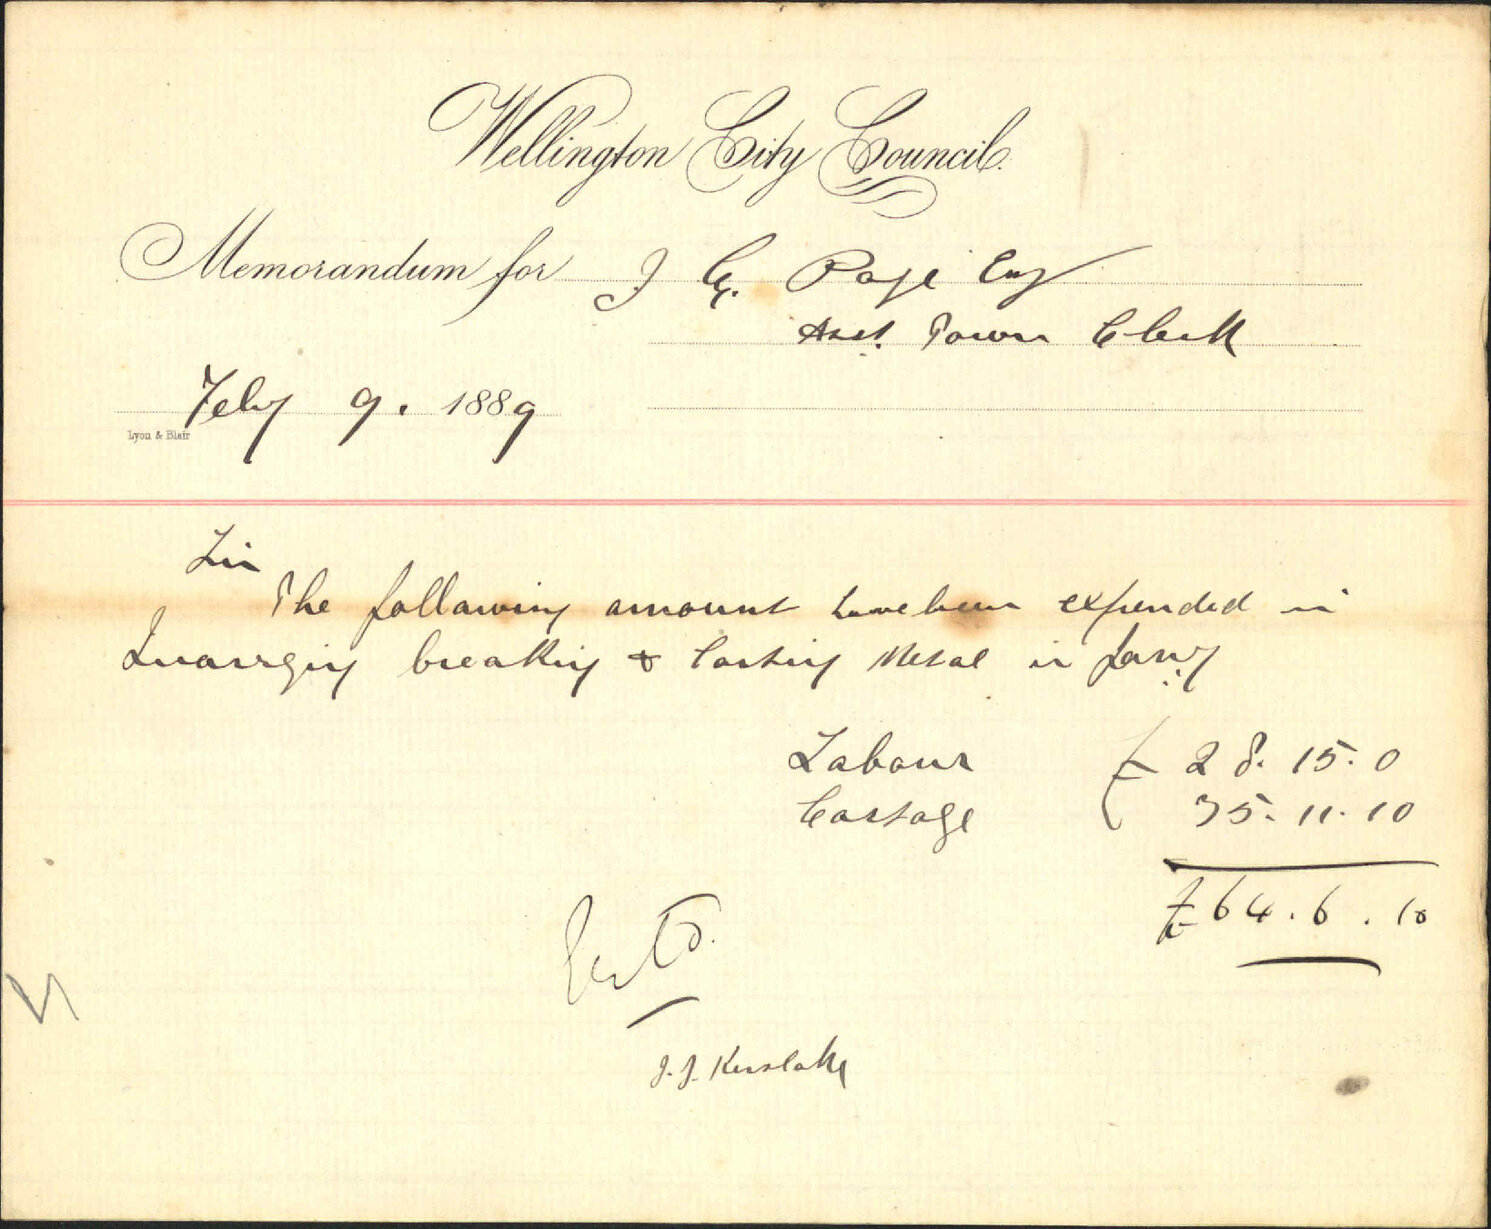 Wellington City Council.
Memorandum for J. G. Page Esq
Asst. Town Clerk
Feby 9. 1889
Lyon & Blair
Sir
The following amount have been expended in
Quarrying breaking & Carting Metal in Jany
Labour £ 28. 15. 0
Cartage 35. 11. 10
£ 64. 6. 10
J. J. Kerslake